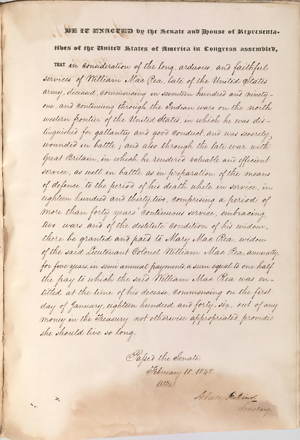 BE IT ENACTED by the Senate and House of Representa-
tives of the United States of America in Congress assembled,
THAT in consideration of the long, arduous, and faithful
services of William Mac Rea, late of the United States
army, deceased, commencing on seventeen hundred and ninety-
one, and continuing through the Indian wars on the north
western frontier of the United States, in which he was dis-
tinguished for gallantry and good conduct, and was severely
wounded in battle; and also through the late war with
Great Britain, in which he rendered valuable and efficient
service, as well in battle as in preparation of the means
of defense, to the period of his death while in service, in
eighteen hundred and thirty-two, comprising a period of
more than forty years' continuous service, embracing
two wars and of the destitute condition of his widow,
there be granted and paid to Mary Mac Rea, widow
of the said Lieutenant Colonel William Mac Rea, annually,
for five years, in semi annual payments a sum equal to one half
the pay to which the said William Mac Rea was en-
titled at the time of his decease, commencing on the first
day of January, eighteen hundred and forty-six, out of any
money in the Treasury not otherwise appropriated, provided
she should live so long.
Passed the Senate
February 18, 1848.
Attest
Secretary.